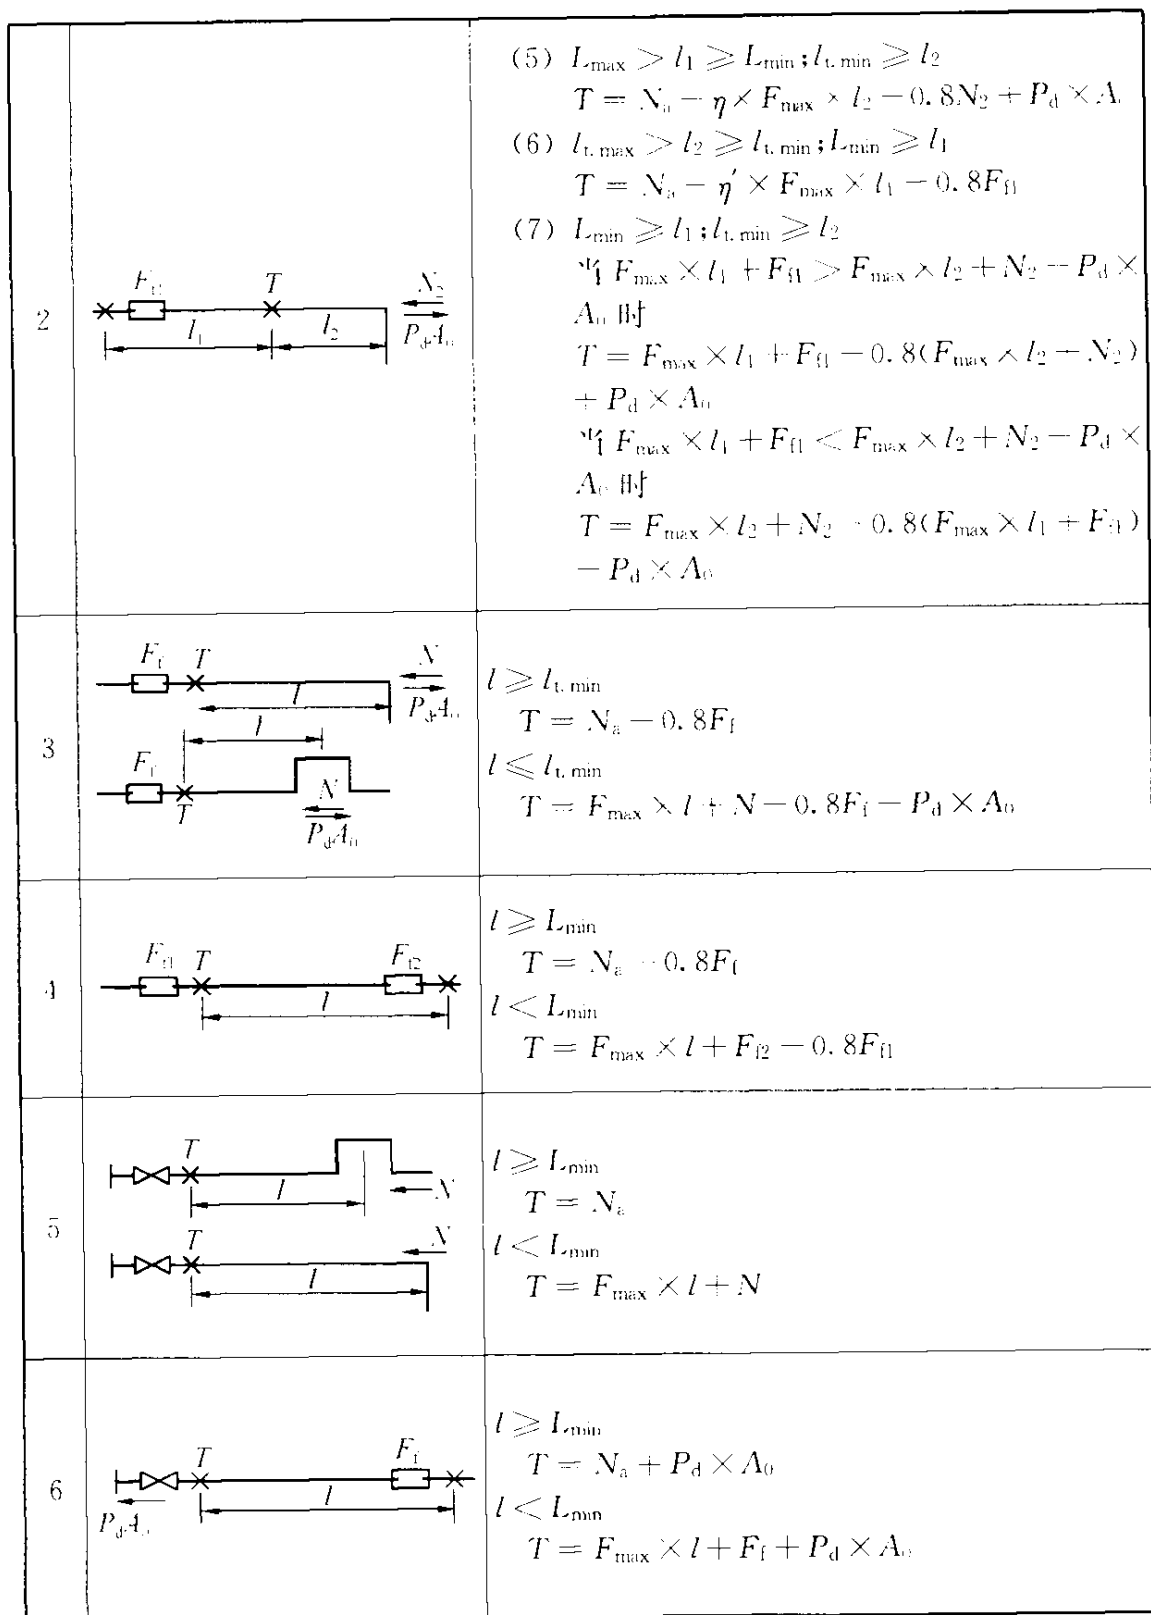 (5) L_max > l_1 ⩾ L_min; l_t.min ⩾ l_2
T = N_a − η × F_max × l_2 − 0.8N_2 + P_d × A
(6) l_t.max > l_2 ⩾ l_t.min; L_min ⩾ l_1
T = N_a − η′ × F_max × l_1 − 0.8F_f1
(7) L_min ⩾ l_1; l_t.min ⩾ l_2
当 F_max × l_1 + F_f1 > F_max × l_2 + N_2 − P_d ×
A_0 时
T = F_max × l_1 + F_f1 − 0.8(F_max × l_2 + N_2)
+ P_d × A_0
当 F_max × l_1 + F_f1 < F_max × l_2 + N_2 − P_d ×
A_0 时
T = F_max × l_2 + N_2 − 0.8(F_max × l_1 + F_f1)
− P_d × A_0
2
F_f1 T N_2
P_dA_0
l_1 l_2
3
F_f T N
l P_dA_0
l
F_f
T N
P_dA_0
l ⩾ l_t.min
T = N_a − 0.8F_f
l ⩽ l_t.min
T = F_max × l + N − 0.8F_f − P_d × A_0
4
F_f1 T F_f2
l
l ⩾ L_min
T = N_a − 0.8F_f
l < L_min
T = F_max × l + F_f2 − 0.8F_f1
5
T
l N
T N
l
l ⩾ L_min
T = N_a
l < L_min
T = F_max × l + N
6
T F_f
P_dA_0 l
l ⩾ L_min
T = N_a + P_d × A_0
l < L_min
T = F_max × l + F_f + P_d × A_0